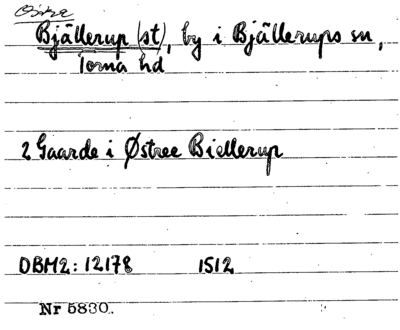 Östre
Bjällerup (st), by i Bjällerups sn,
Torna hd
2 Gaarde i Østree Biellerup
DBM2: 12178 1512
Nr 5830.